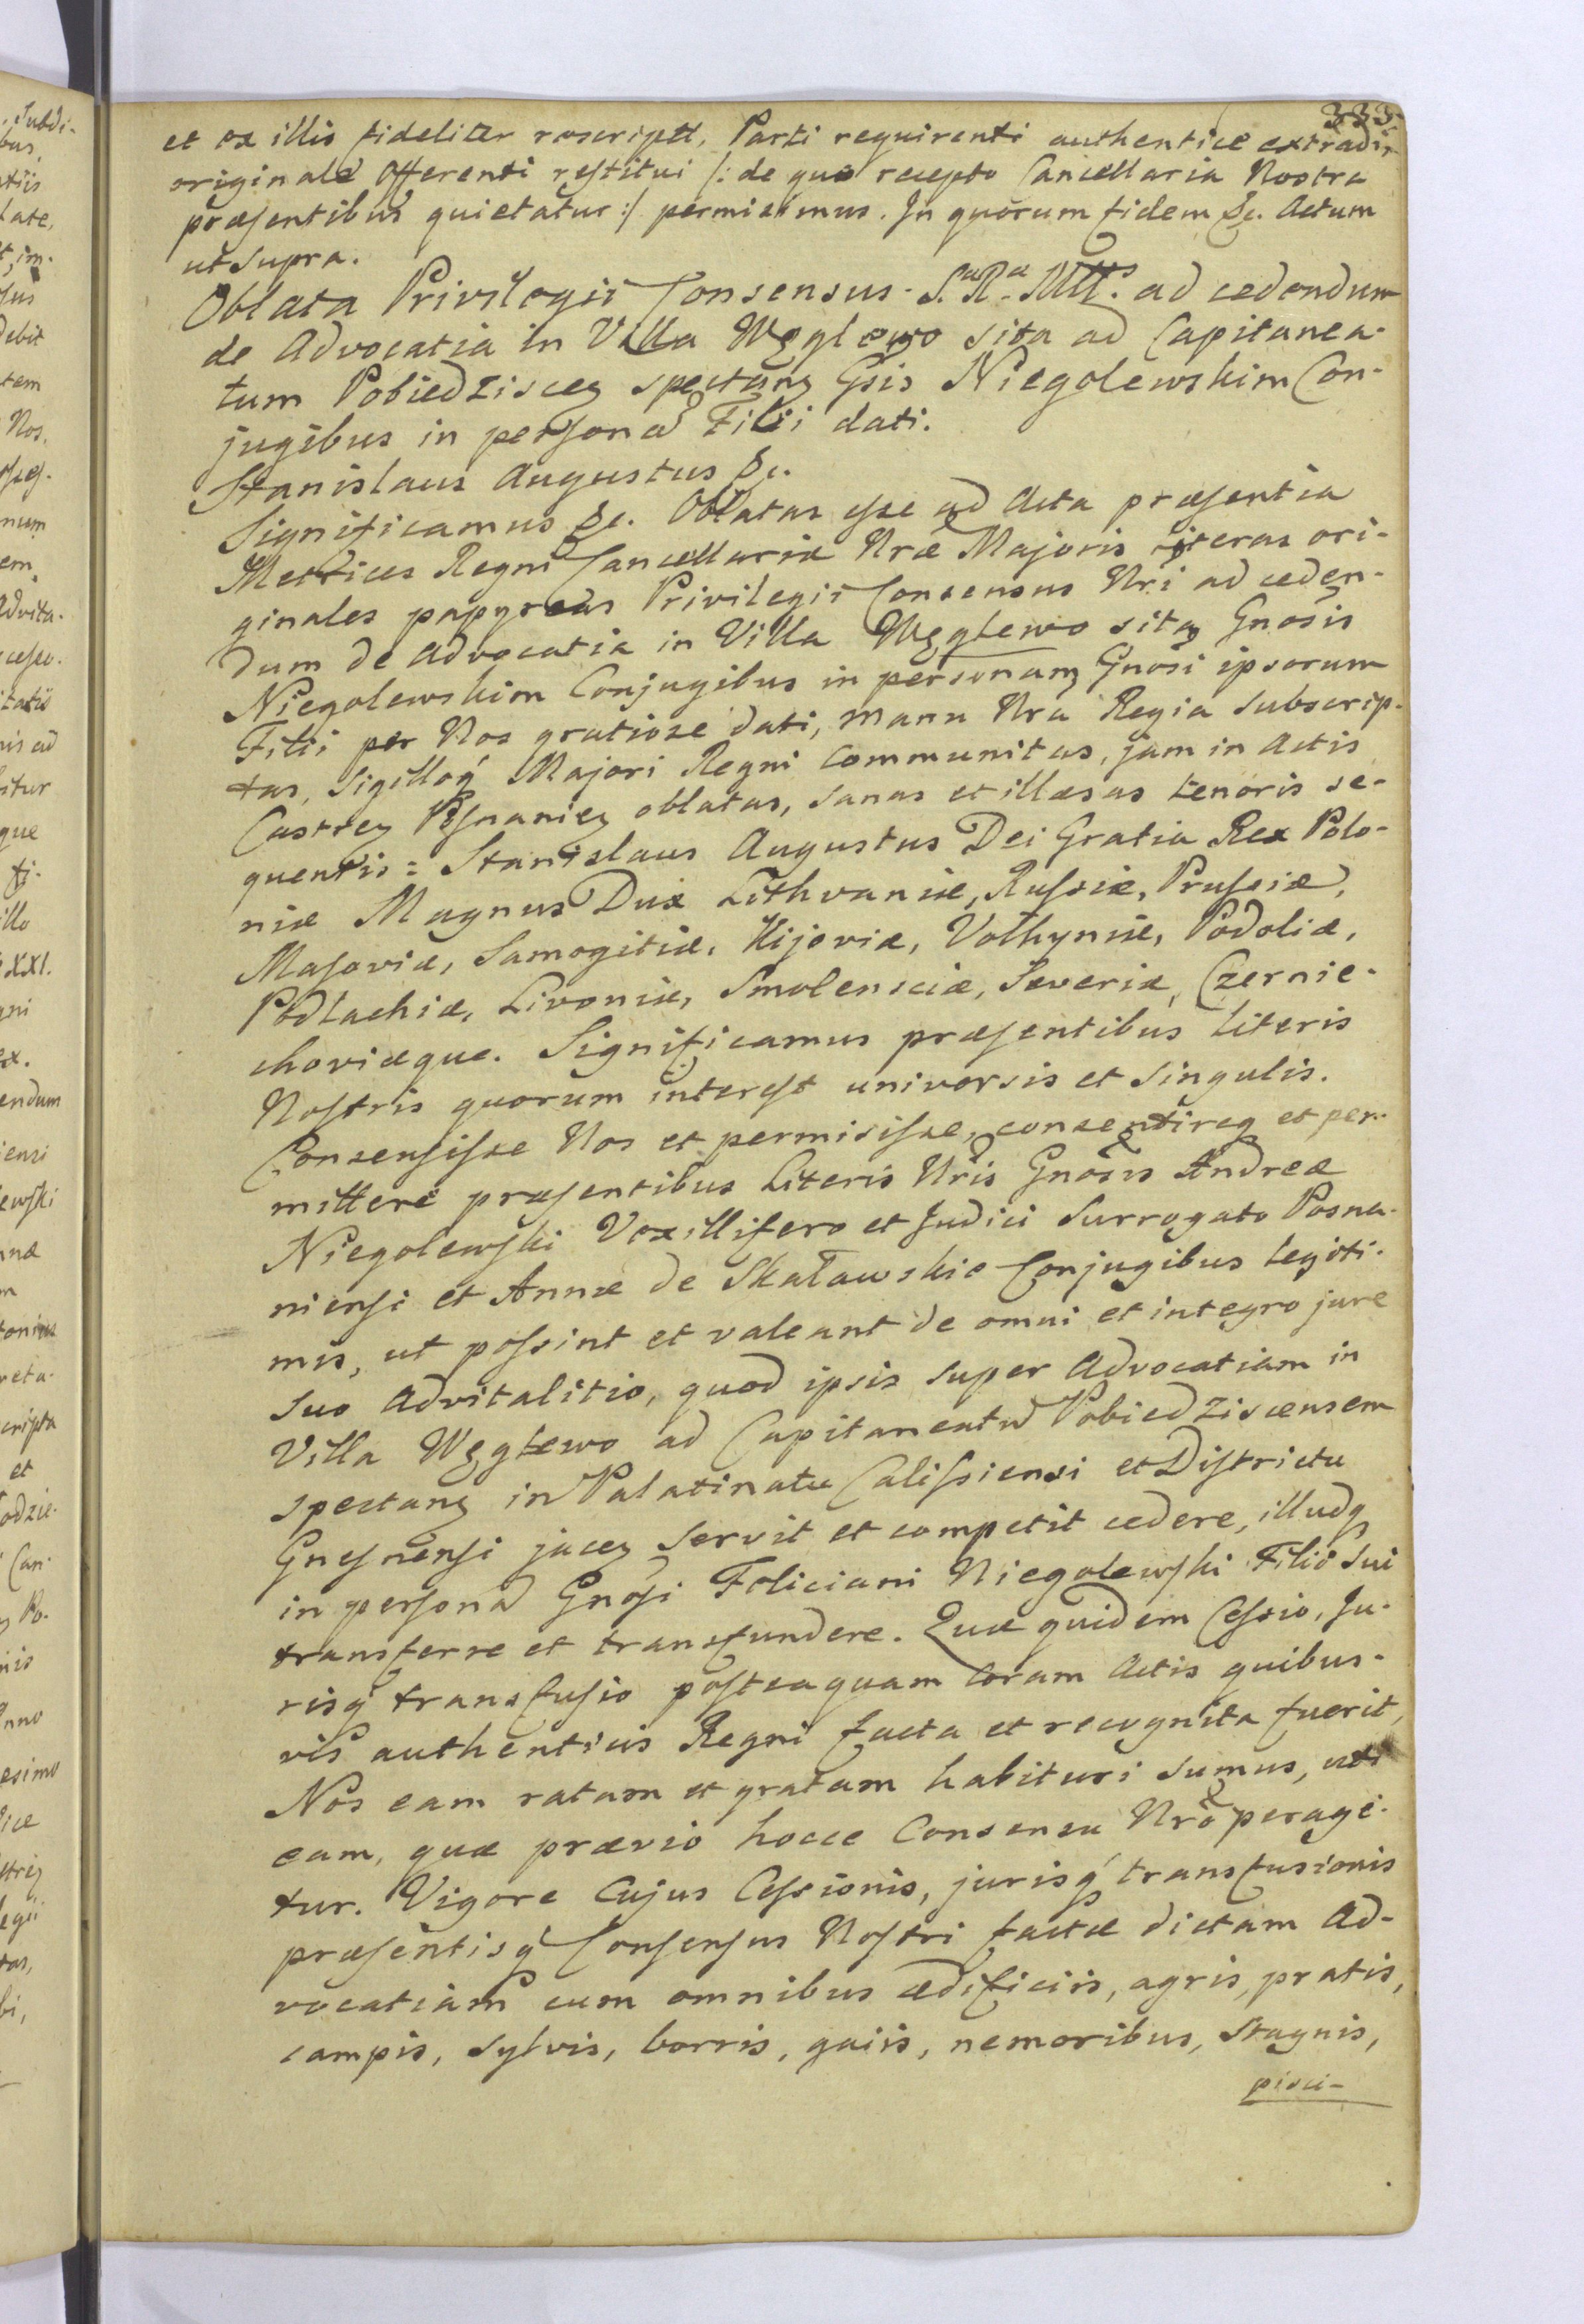 333.
et ex illis fideliter rescriptt, Parti requirenti authentice extradi,
originale Offerenti restitui /: de quo recepto Cancellaria Nostra
præsentibus quietatur :/ permisimus. In quorum fidem &c. Actum
ut supra.
Oblata Privilegii Consensus S. R. Mttis ad cedendum
de Advocatia in Villa Węglewo sita ad Capitanea-
tum Pobiedziscen spectan Gsis Niegolewskim Con-
jugibus in persona Filii dati.
Stanislaus Augustus &c.
Significamus &c. Oblatas esse ad Acta præsentia
Metrices Regni Cancellariæ Nræ Majoris literas ori-
ginales papyreas Privilegii Consensus Nri ad ceden-
dum de Advocatia in Villa Węglewo sitæ Gnosis
Niegolewskim Conjugibus in personam Gnosi ipsorum
Filii per Nos gratiose dati, manu Nra Regia subscrip-
tas, Sigilloq Majori Regni Communitas, jam in Actis
Castren Posnanien oblatas, sanas et illæsas tenoris se-
quentis: Stanislaus Augustus Dei Gratia Rex Polo-
niæ Magnus Dux Lithvaniæ, Russiæ, Prussiæ,
Masoviæ, Samogitiæ, Kijoviæ, Volhyniæ, Podoliæ,
Podlachiæ, Livoniæ, Smolensciæ, Severiæ, Czernie-
choviæque. Significamus præsentibus Literis
Nostris quorum interest universis et singulis.
Consensisse Nos et permisisse, consentireq et per-
mittere præsentibus Literis Nris Gnosis Andreæ
Niegolewski Vexillifero et Judici Surrogato Posna-
niensi et Annæ de Skaławskie Conjugibus legiti-
mis, ut possint et valeant de omni et integro jure
suo Advitalitio, quod ipsis super Advocatiam in
Villa Węglewo ad Capitaneatu Pobiedziscensem
spectan in Palatinatu Calissiensi et Districtu
Gnesnensi jacen servit et competit cedere, illudq
in persona Gnosi Feliciani Niegolewski Filii Sui
transferre et transfundere. Quæ quidem Cessio, Ju-
risq transfusio posteaquam coram Actis quibus-
vis authenticis Regni facta et recognita fuerit,
Nos eam ratam et gratam habituri sumus, uti
eam, quæ prævio hocce Consensu Nro perage-
tur. Vigore Cujus Cessionis, jurisq transfusionis
præsentisq Consensus Nostri factæ dictam Ad-
vocatiam cum omnibus ædificiis, agris, pratis,
campis, sylvis, borris, gaiis, nemoribus, stagnis,
pisci-